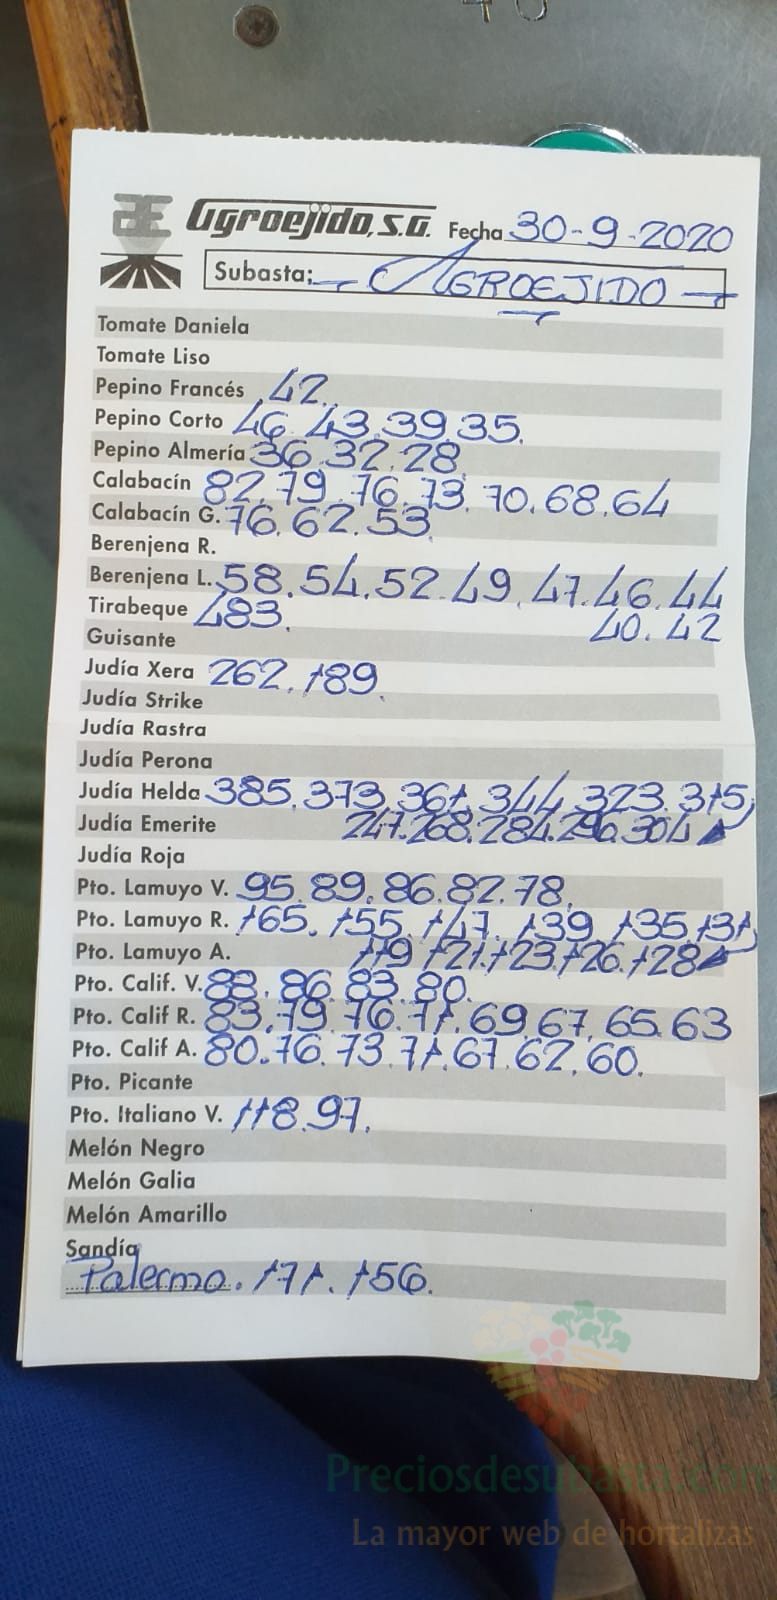 40
AE Agroejido, S.A. Fecha 30-9-2020
Subasta: AGROEJIDO
Tomate Daniela
Tomate Liso
Pepino Francés 42.
Pepino Corto 46.43.39.35.
Pepino Almería 36.32.28.
Calabacín 82.79.76.73.70.68.64
Calabacín G. 76.62.53.
Berenjena R.
Berenjena L. 58.54.52.49.47.46.44
Tirabeque 483. 40.42
Guisante
Judía Xera 262.189.
Judía Strike
Judía Rastra
Judía Perona
Judía Helda 385.373.361.344.323.315
Judía Emerite 247.268.284.296.304
Judía Roja
Pto. Lamuyo V. 95.89.86.82.78.
Pto. Lamuyo R. 165.155.147.139.135.131
Pto. Lamuyo A. 119.121.123.126.128
Pto. Calif. V. 88.86.83.80.
Pto. Calif R. 83.79.76.71.69.67.65.63
Pto. Calif A. 80.76.73.71.67.62.60.
Pto. Picante
Pto. Italiano V. 118.97.
Melón Negro
Melón Galia
Melón Amarillo
Sandía
Palermo. 171.156.
Preciosdesubasta.com
La mayor web de hortalizas